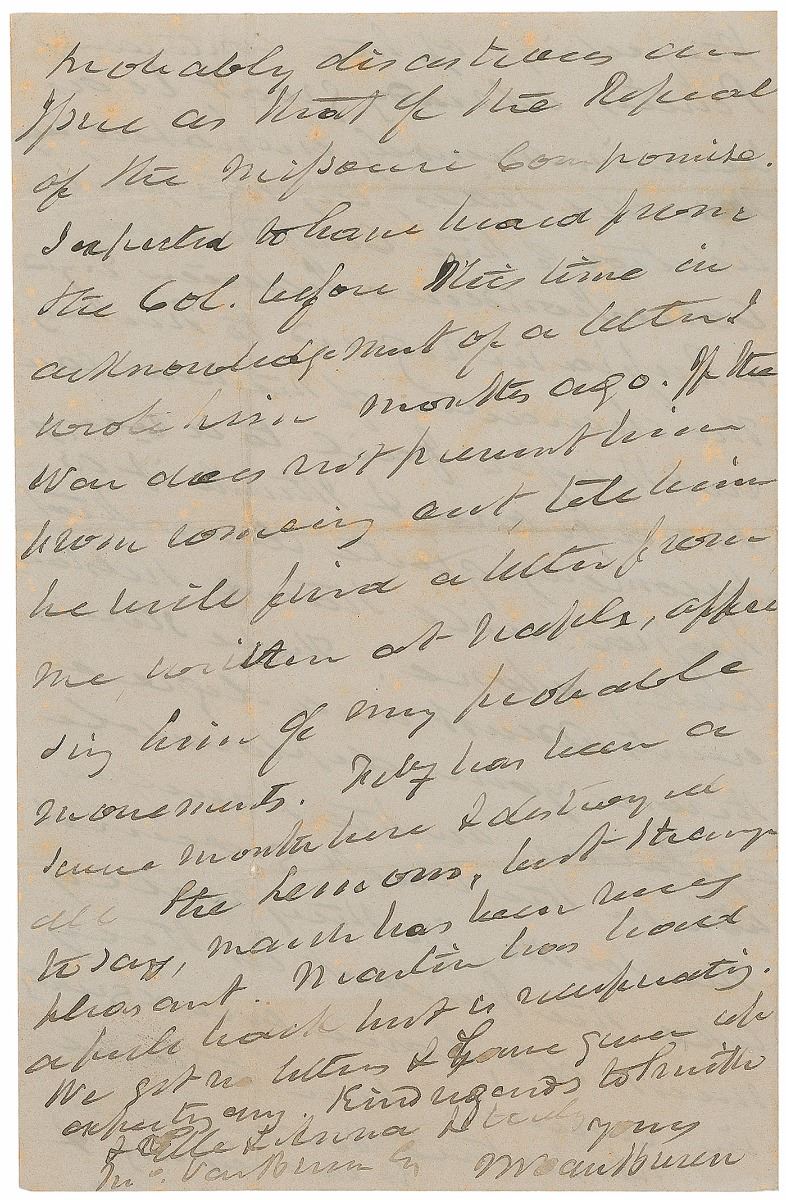 probably disastrous an
issue as that of the Repeal
of the Missouri Compromise.
I expected to have heard from
the Col. before this time in
acknowledgement of a letter I
wrote him months ago. If the
War does not prevent him
from coming out, tell him
he will find a letter from
me written at Naples, appri
sing him of my probable
movements. Feby has been a
severe month here & destroyed
all the Lemons, but strange
to say, March has been very
pleasant. Martin has had
a pull back but is recuperating.
We get no letters & have given up
expecting any. Kind regards to Smith
& Anna & truly yours
Van Buren Esq M Van Buren